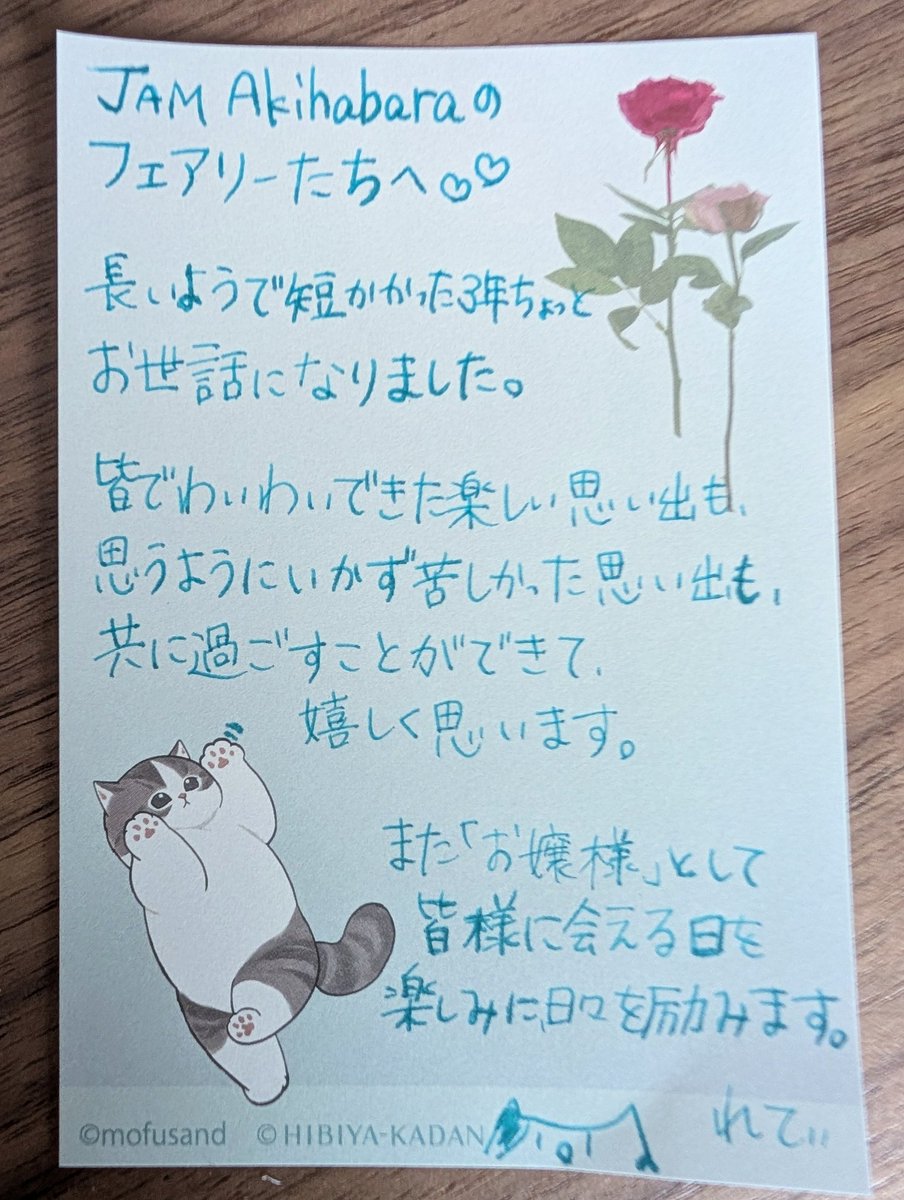 JAM Akihabaraの
フェアリーたちへ♡♡
長いようで短かかった3年ちょっと
お世話になりました。
皆でわいわいできた楽しい思い出も、
思うようにいかず苦しかった思い出も、
共に過ごすことができて、
嬉しく思います。
また「お嬢様」として
皆様に会える日を
楽しみに、日々を励みます。
れてぃ
©mofusand ©HIBIYA-KADAN